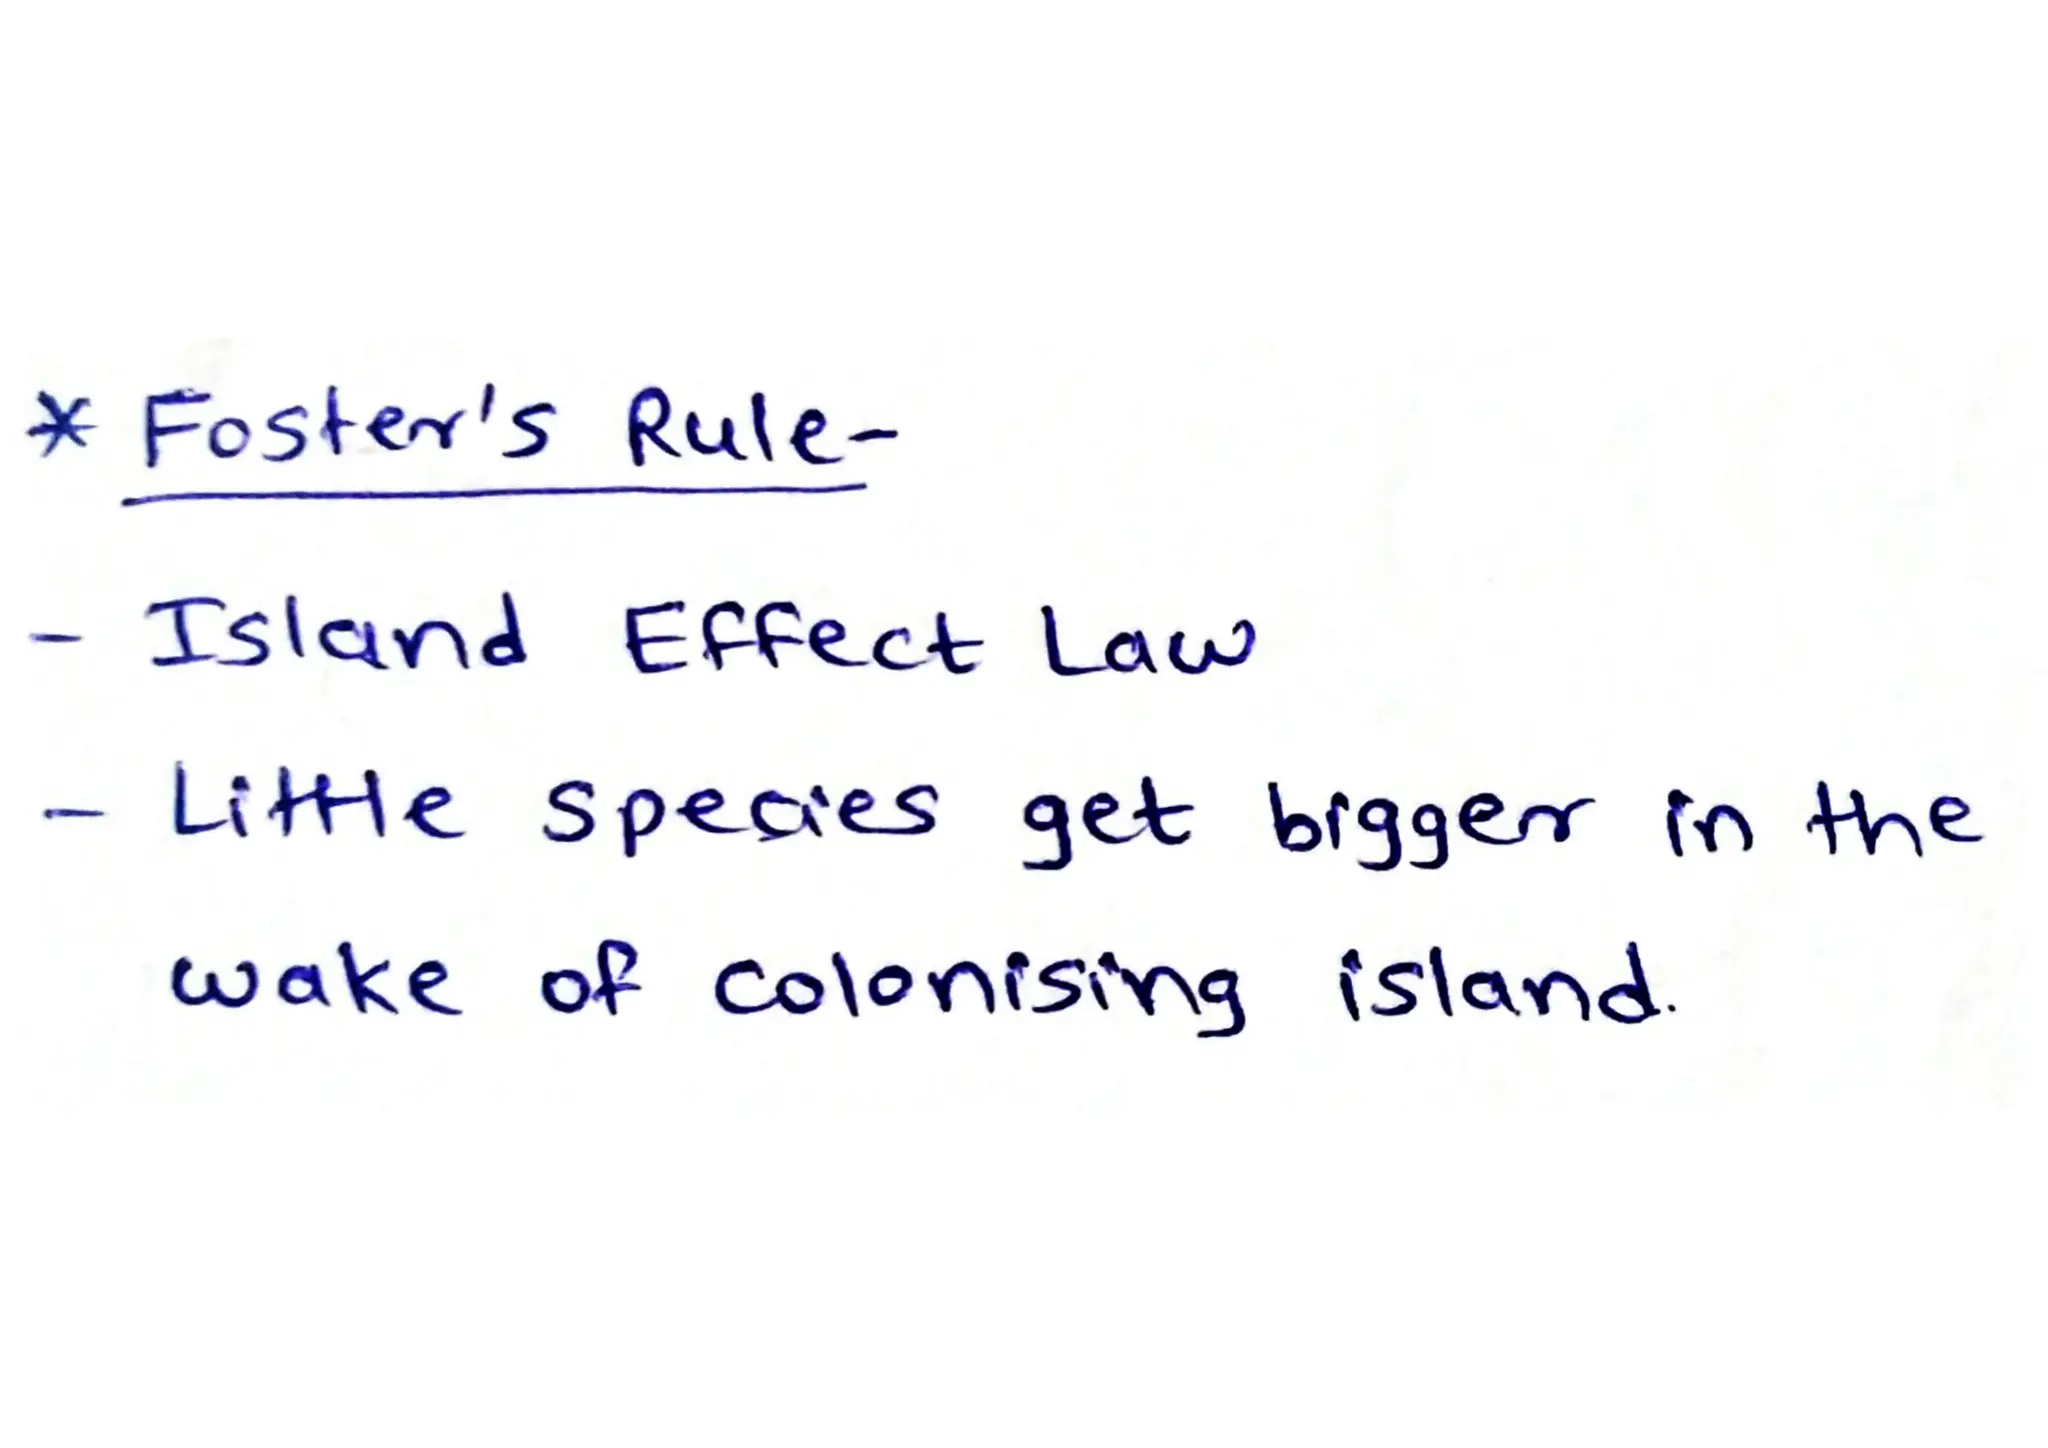 * Foster's Rule-
- Island Effect Law
- Little species get bigger in the
wake of colonising island.